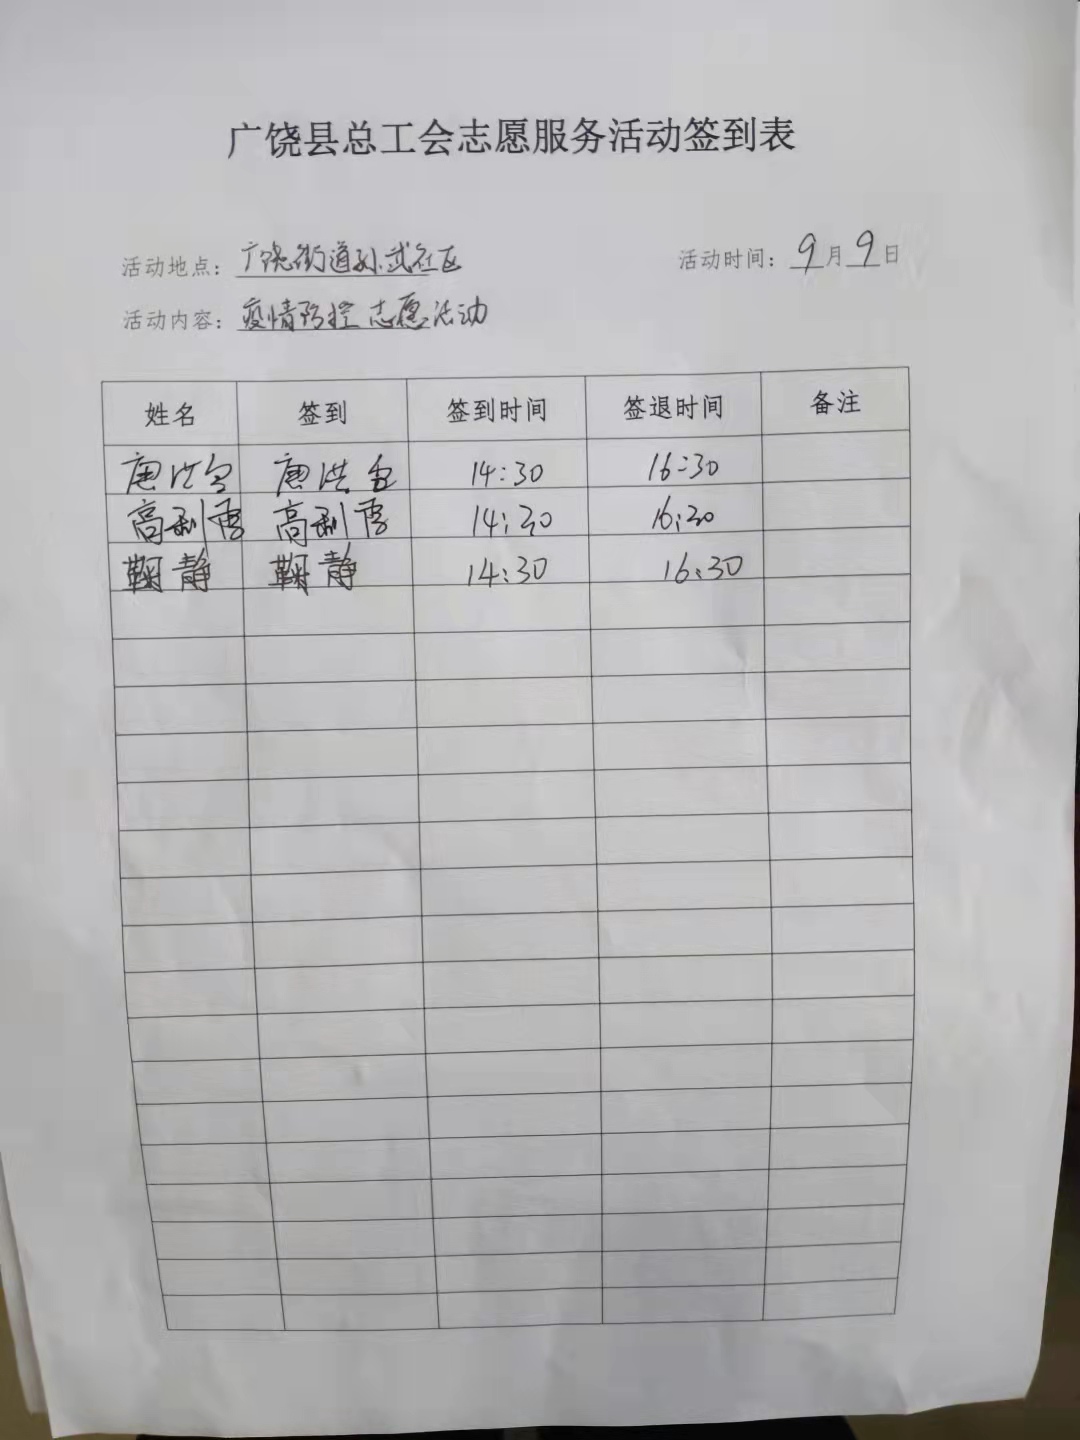 广饶县总工会志愿服务活动签到表
活动地点：广饶街道孙武社区 活动时间：9月9日
活动内容：疫情防控志愿活动
姓名 签到 签到时间 签退时间 备注
唐洪 唐洪 14:30 16:30
高利 高利 14:30 16:30
鞠静 鞠静 14:30 16:30